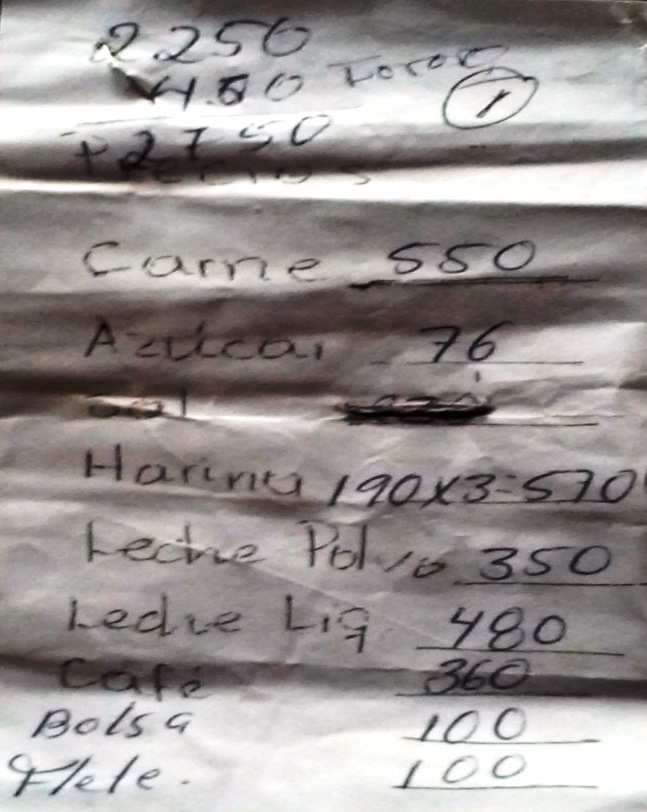 2250
1
+2750
Precios
Carne 550
Azúcar 76
Sal
Harina 190x3=570
Leche Polvo 350
Leche Liq. 480
Café 360
Bolsa 100
Flete. 100